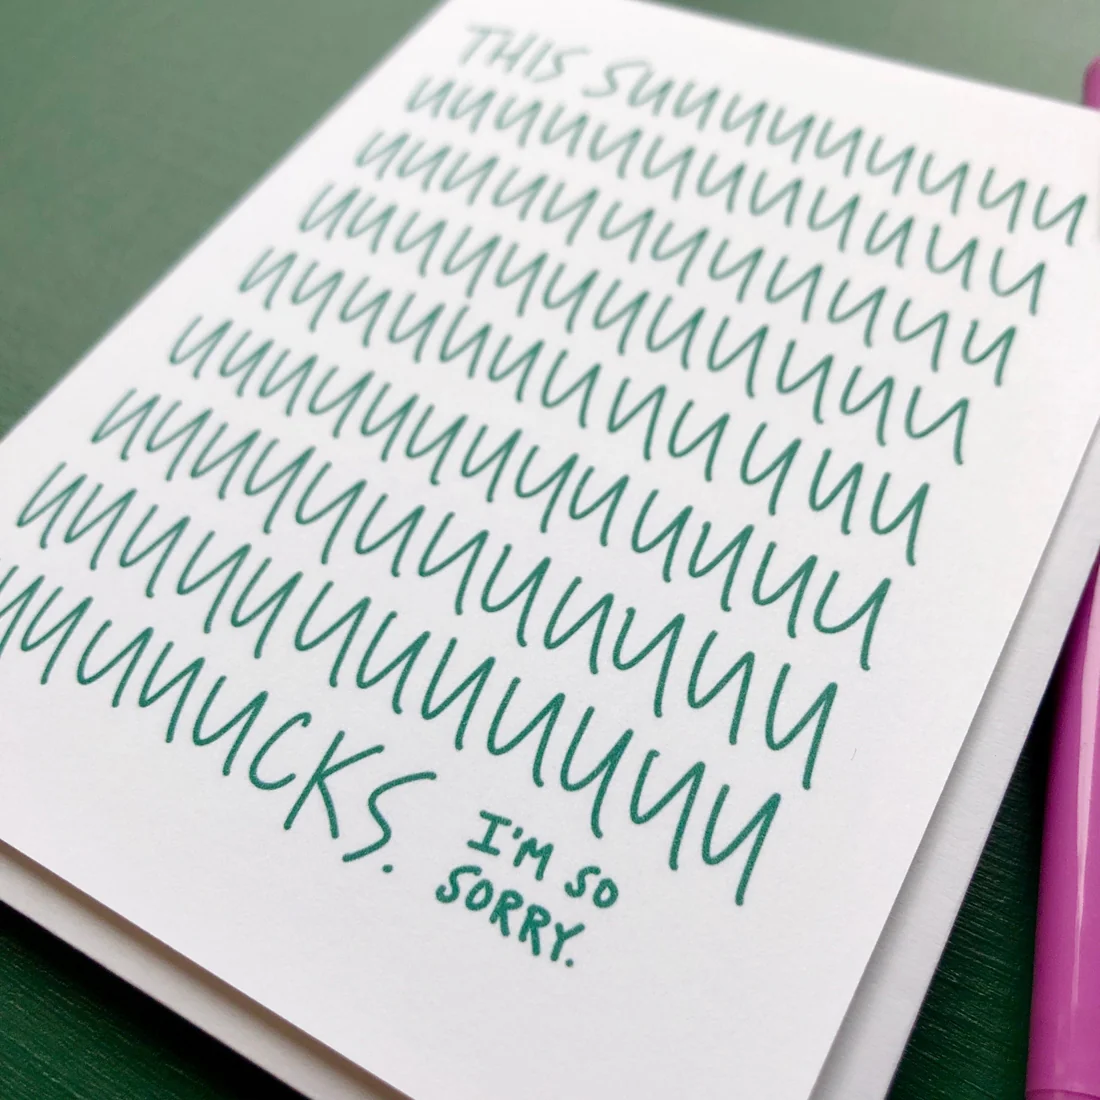 THIS SUUUUUUUUU
UUUUUUUUUUU
UUUUUUUUUUU
UUUUUUUUUUU
UUUUUUUUUUU
UUUUUUUUUUU
UUUUUUUUUU
UUUUUUUUUU
UUUUUCKS.
I'M SO
SORRY.